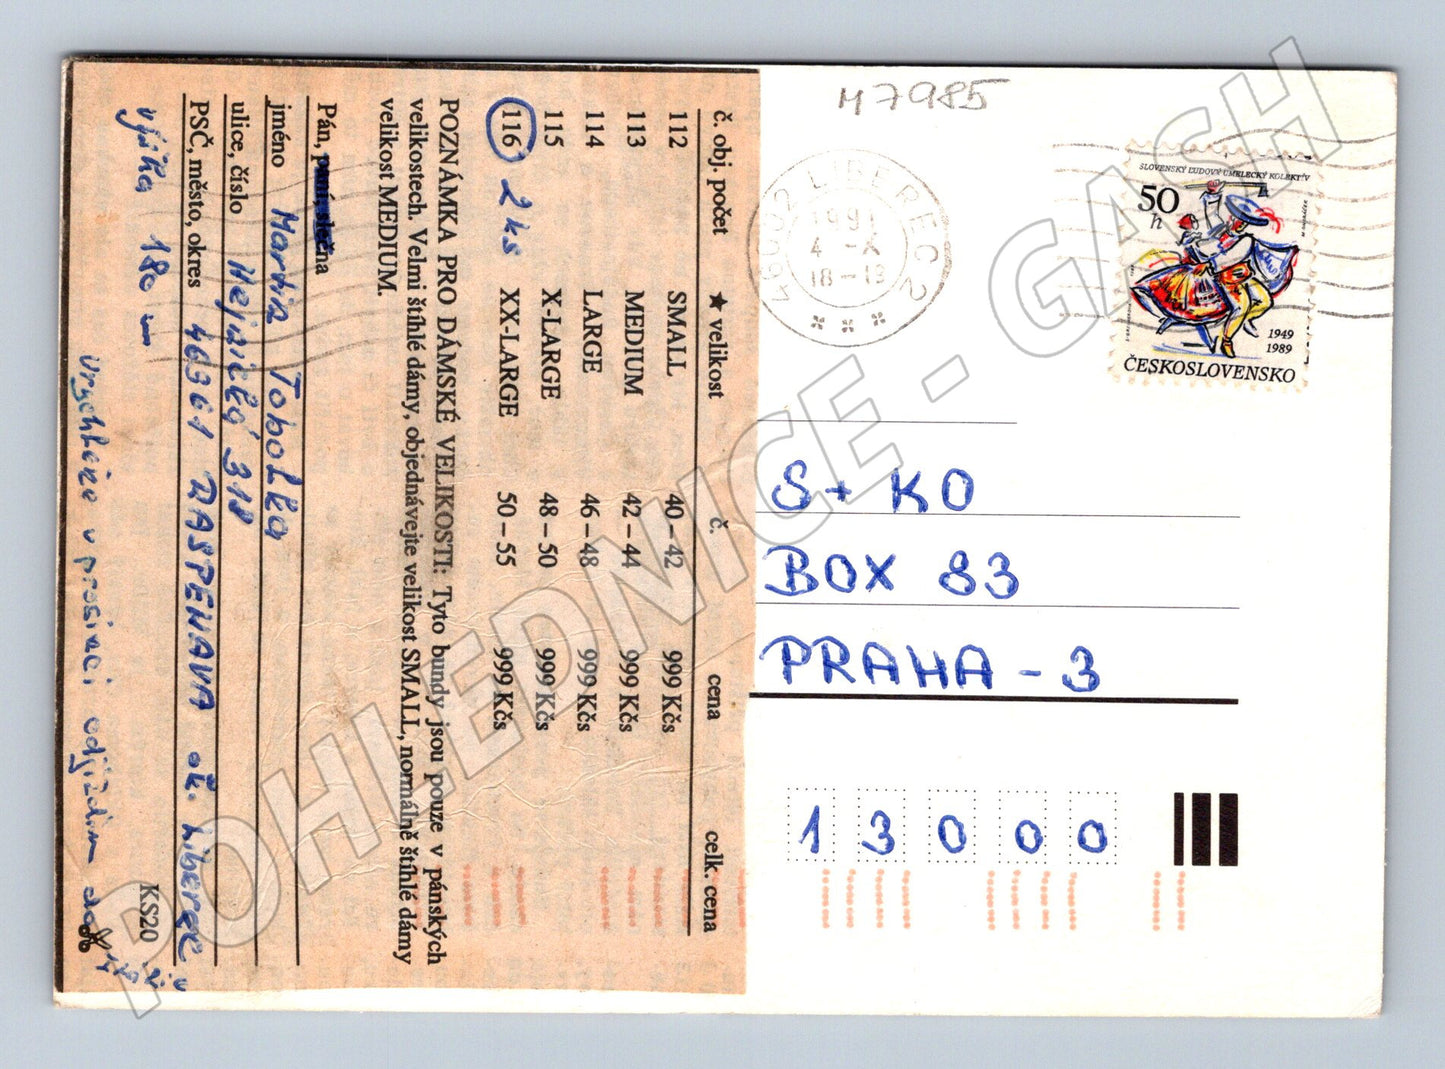 č. obj. počet ★ velikost č. cena celk. cena
112 SMALL 40–42 999 Kčs
113 MEDIUM 42–44 999 Kčs
114 LARGE 46–48 999 Kčs
115 X-LARGE 48–50 999 Kčs
116 2 ks XX-LARGE 50–55 999 Kčs
POZNÁMKA PRO DÁMSKÉ VELIKOSTI: Tyto bundy jsou pouze v pánských
velikostech. Velmi štíhlé dámy, objednávejte velikost SMALL, normálně štíhlé dámy
velikost MEDIUM.
Pán, paní, slečna
jméno Tobolka
ulice, číslo 318
PSČ, město, okres 46361 RASPENAVA ok. Liberec
výška 180 cm
KS20
v prosinci odjíždím do
M7985
46002 LIBEREC 2
1991
4 -X
18-19
SLOVENSKÝ ĽUDOVÝ UMELECKÝ KOLEKTÍV
50
h
1949
1989
ČESKOSLOVENSKO
S+KO
BOX 83
PRAHA - 3
13000
POHLEDNICE - GASH